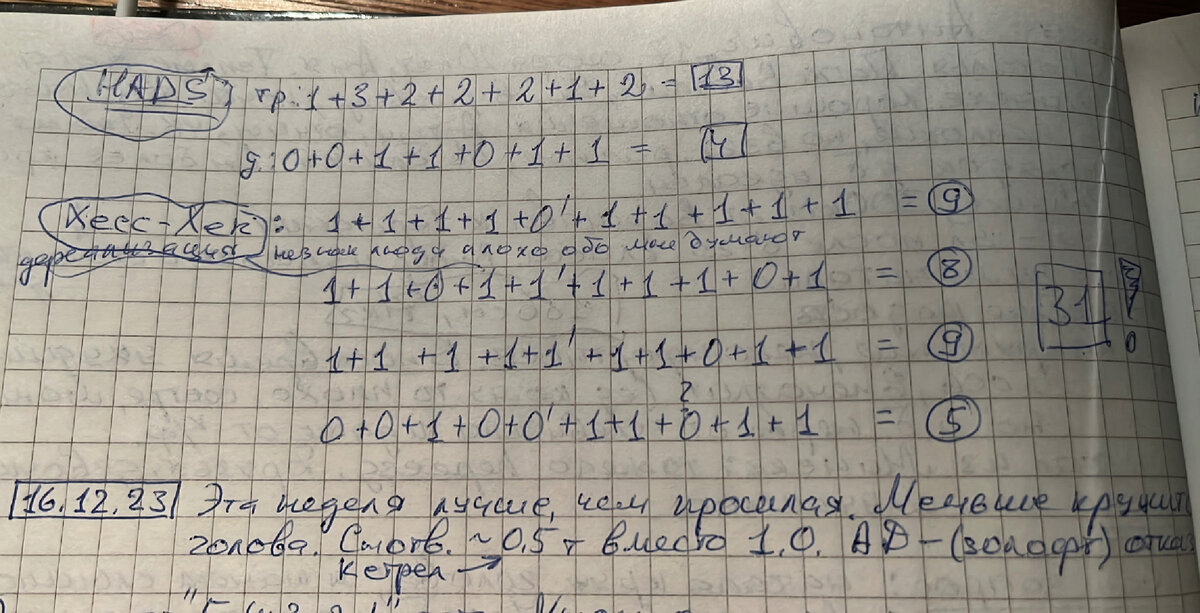 HADS тр.: 1+3+2+2+2+1+2 = 13
д.: 0+0+1+1+0+1+1 = 4
Хесс-Хек: 1+1+1+1+0'+1+1+1+1+1 = 9
незнак люди плохо обо мне думают
1+1+0+1+1'+1+1+1+0+1 = 8
31!
1+1+1+1+1'+1+1+0+1+1 = 9
?
0+0+1+0+0'+1+1+0+1+1 = 5
16.12.23 Эта неделя лучше, чем прошлая. Меньше кружит
голова. Снотв. ~0,5 т вместо 1.0. АД – (золофт) отказ
Кетрел →